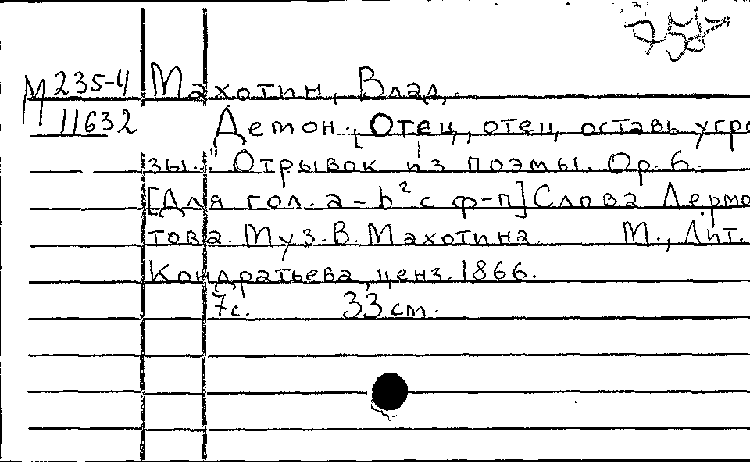 757
М 235-4 Махотин, Влад.
11632 Демон. „Отец, отец, оставь угро
зы..." Отрывок из поэмы. Ор. 6.
[Для гол. a – h² с ф-п] Слова Лермо
това. Муз. В. Махотина. М., Лит.
Кондратьева, ценз. 1866.
7с. 33 cm.